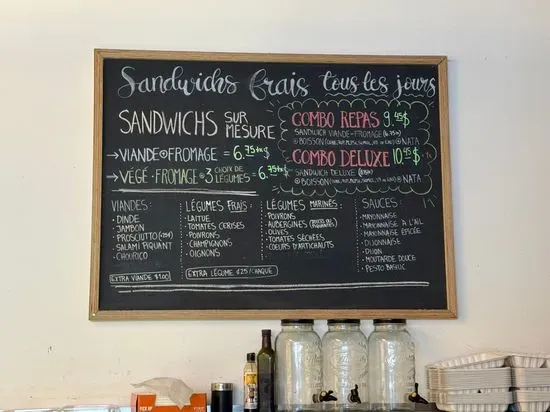 Sandwichs frais tous les jours
SANDWICHS SUR MESURE
→ VIANDE + FROMAGE = 6.75+tx $
→ VÉGÉ - FROMAGE + 3 CHOIX DE LÉGUMES = 6.75+tx $
COMBO REPAS 9.45 $
SANDWICH VIANDE-FROMAGE (6.75)
+ BOISSON + NATA
COMBO DELUXE 10.95 $
SANDWICH DELUXE
+ BOISSON + NATA
VIANDES:
- DINDE
- JAMBON
- PROSCIUTTO
- SALAMI PIQUANT
- CHOURICO
EXTRA VIANDE $1.00
LÉGUMES FRAIS:
- LAITUE
- TOMATES CERISES
- POIVRONS
- CHAMPIGNONS
- OIGNONS
EXTRA LÉGUME ¢25/CHAQUE
LÉGUMES MARINÉS:
- POIVRONS
- AUBERGINES (DOUCES OU PIQUANTES)
- OLIVES
- TOMATES SÉCHÉES
- COEURS D'ARTICHAUTS
SAUCES:
- MAYONNAISE
- MAYONNAISE À L'AIL
- MAYONNAISE ÉPICÉE
- DIJONNAISE
- DIJON
- MOUTARDE DOUCE
- PESTO BASILIC